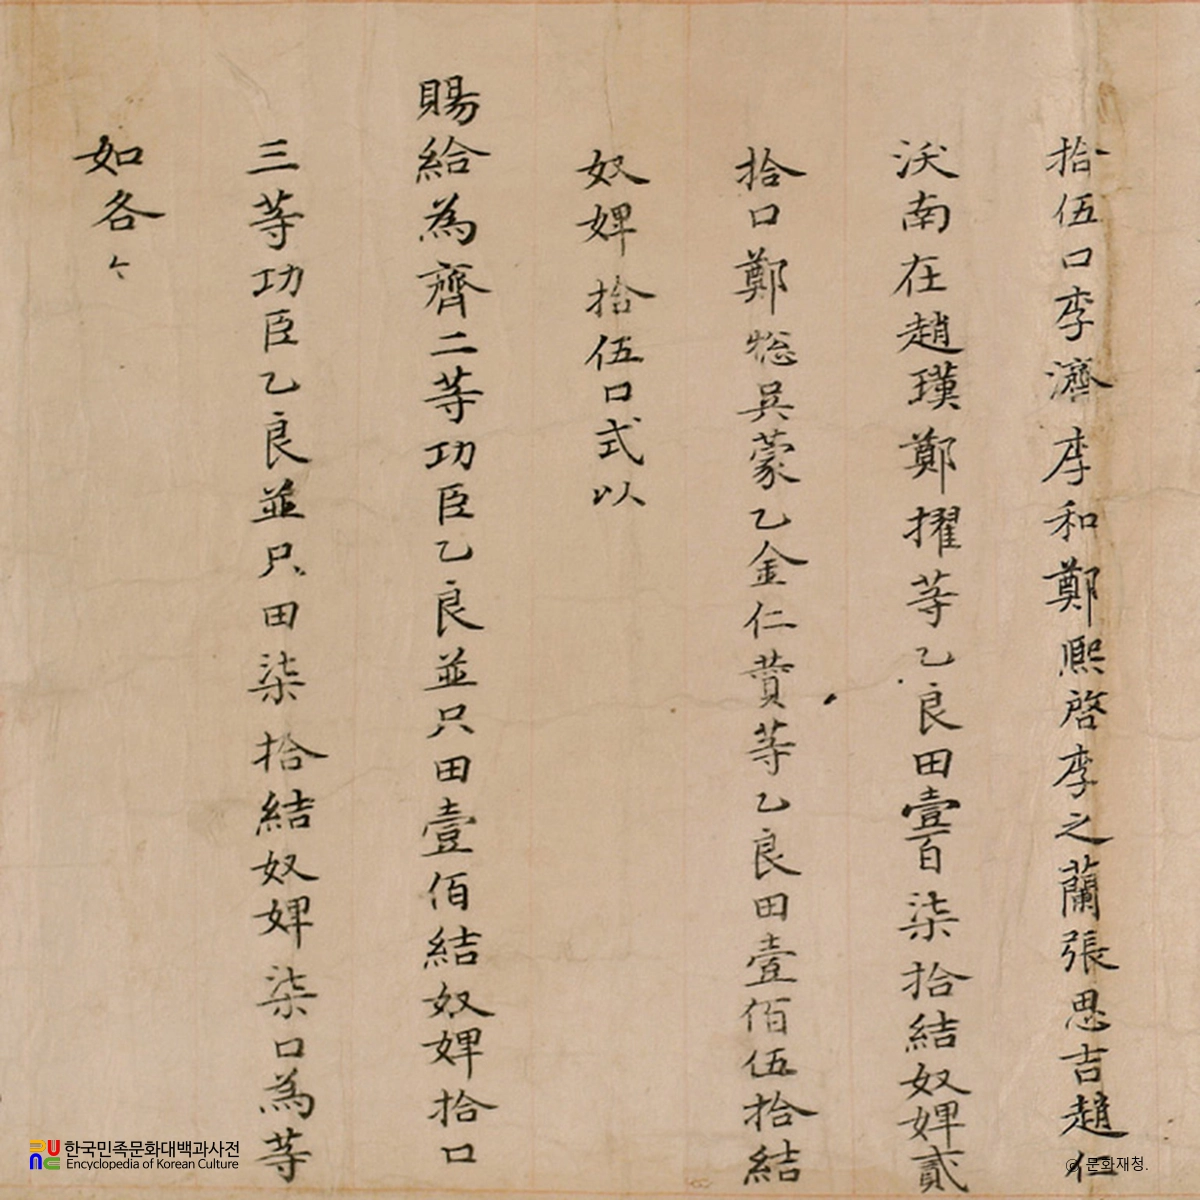 拾伍口李濟李和鄭熙啓李之蘭張思吉趙仁
沃南在趙璞鄭擢等乙良田壹百柒拾結奴婢貳
拾口鄭摠吳蒙乙金仁賛等乙良田壹佰伍拾結
奴婢拾伍口式以
賜給為齊二等功臣乙良並只田壹佰結奴婢拾口
三等功臣乙良並只田柒拾結奴婢柒口為等
如各
한국민족문화대백과사전
Encyclopedia of Korean Culture
© 문화재청.